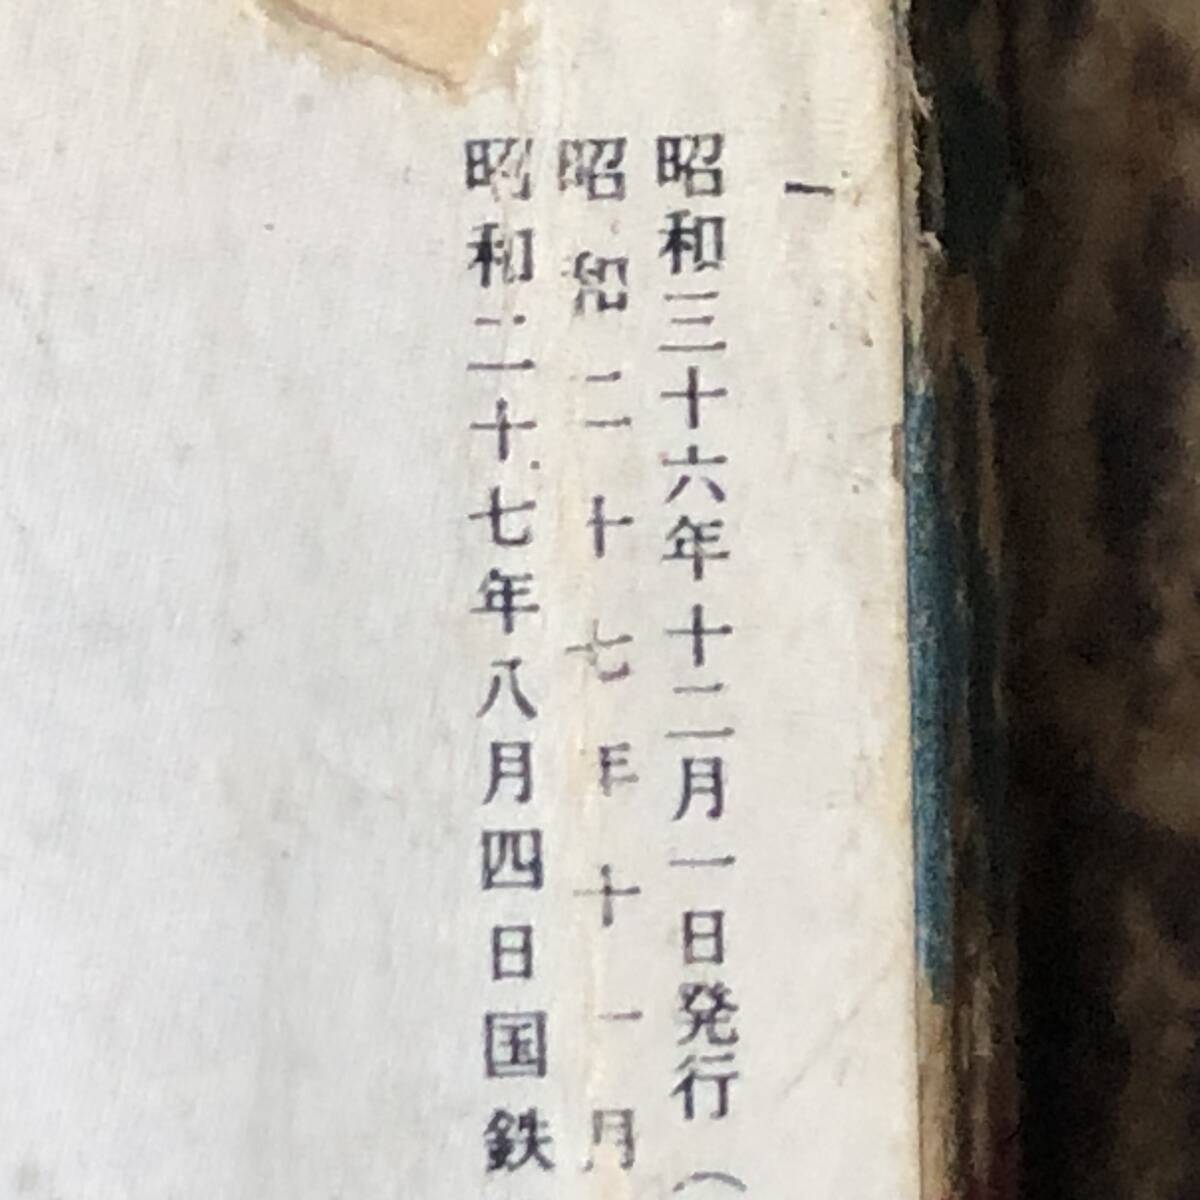 昭和三十六年十二月一日発行（
昭和二十七年十一月
昭和二十七年八月四日国鉄